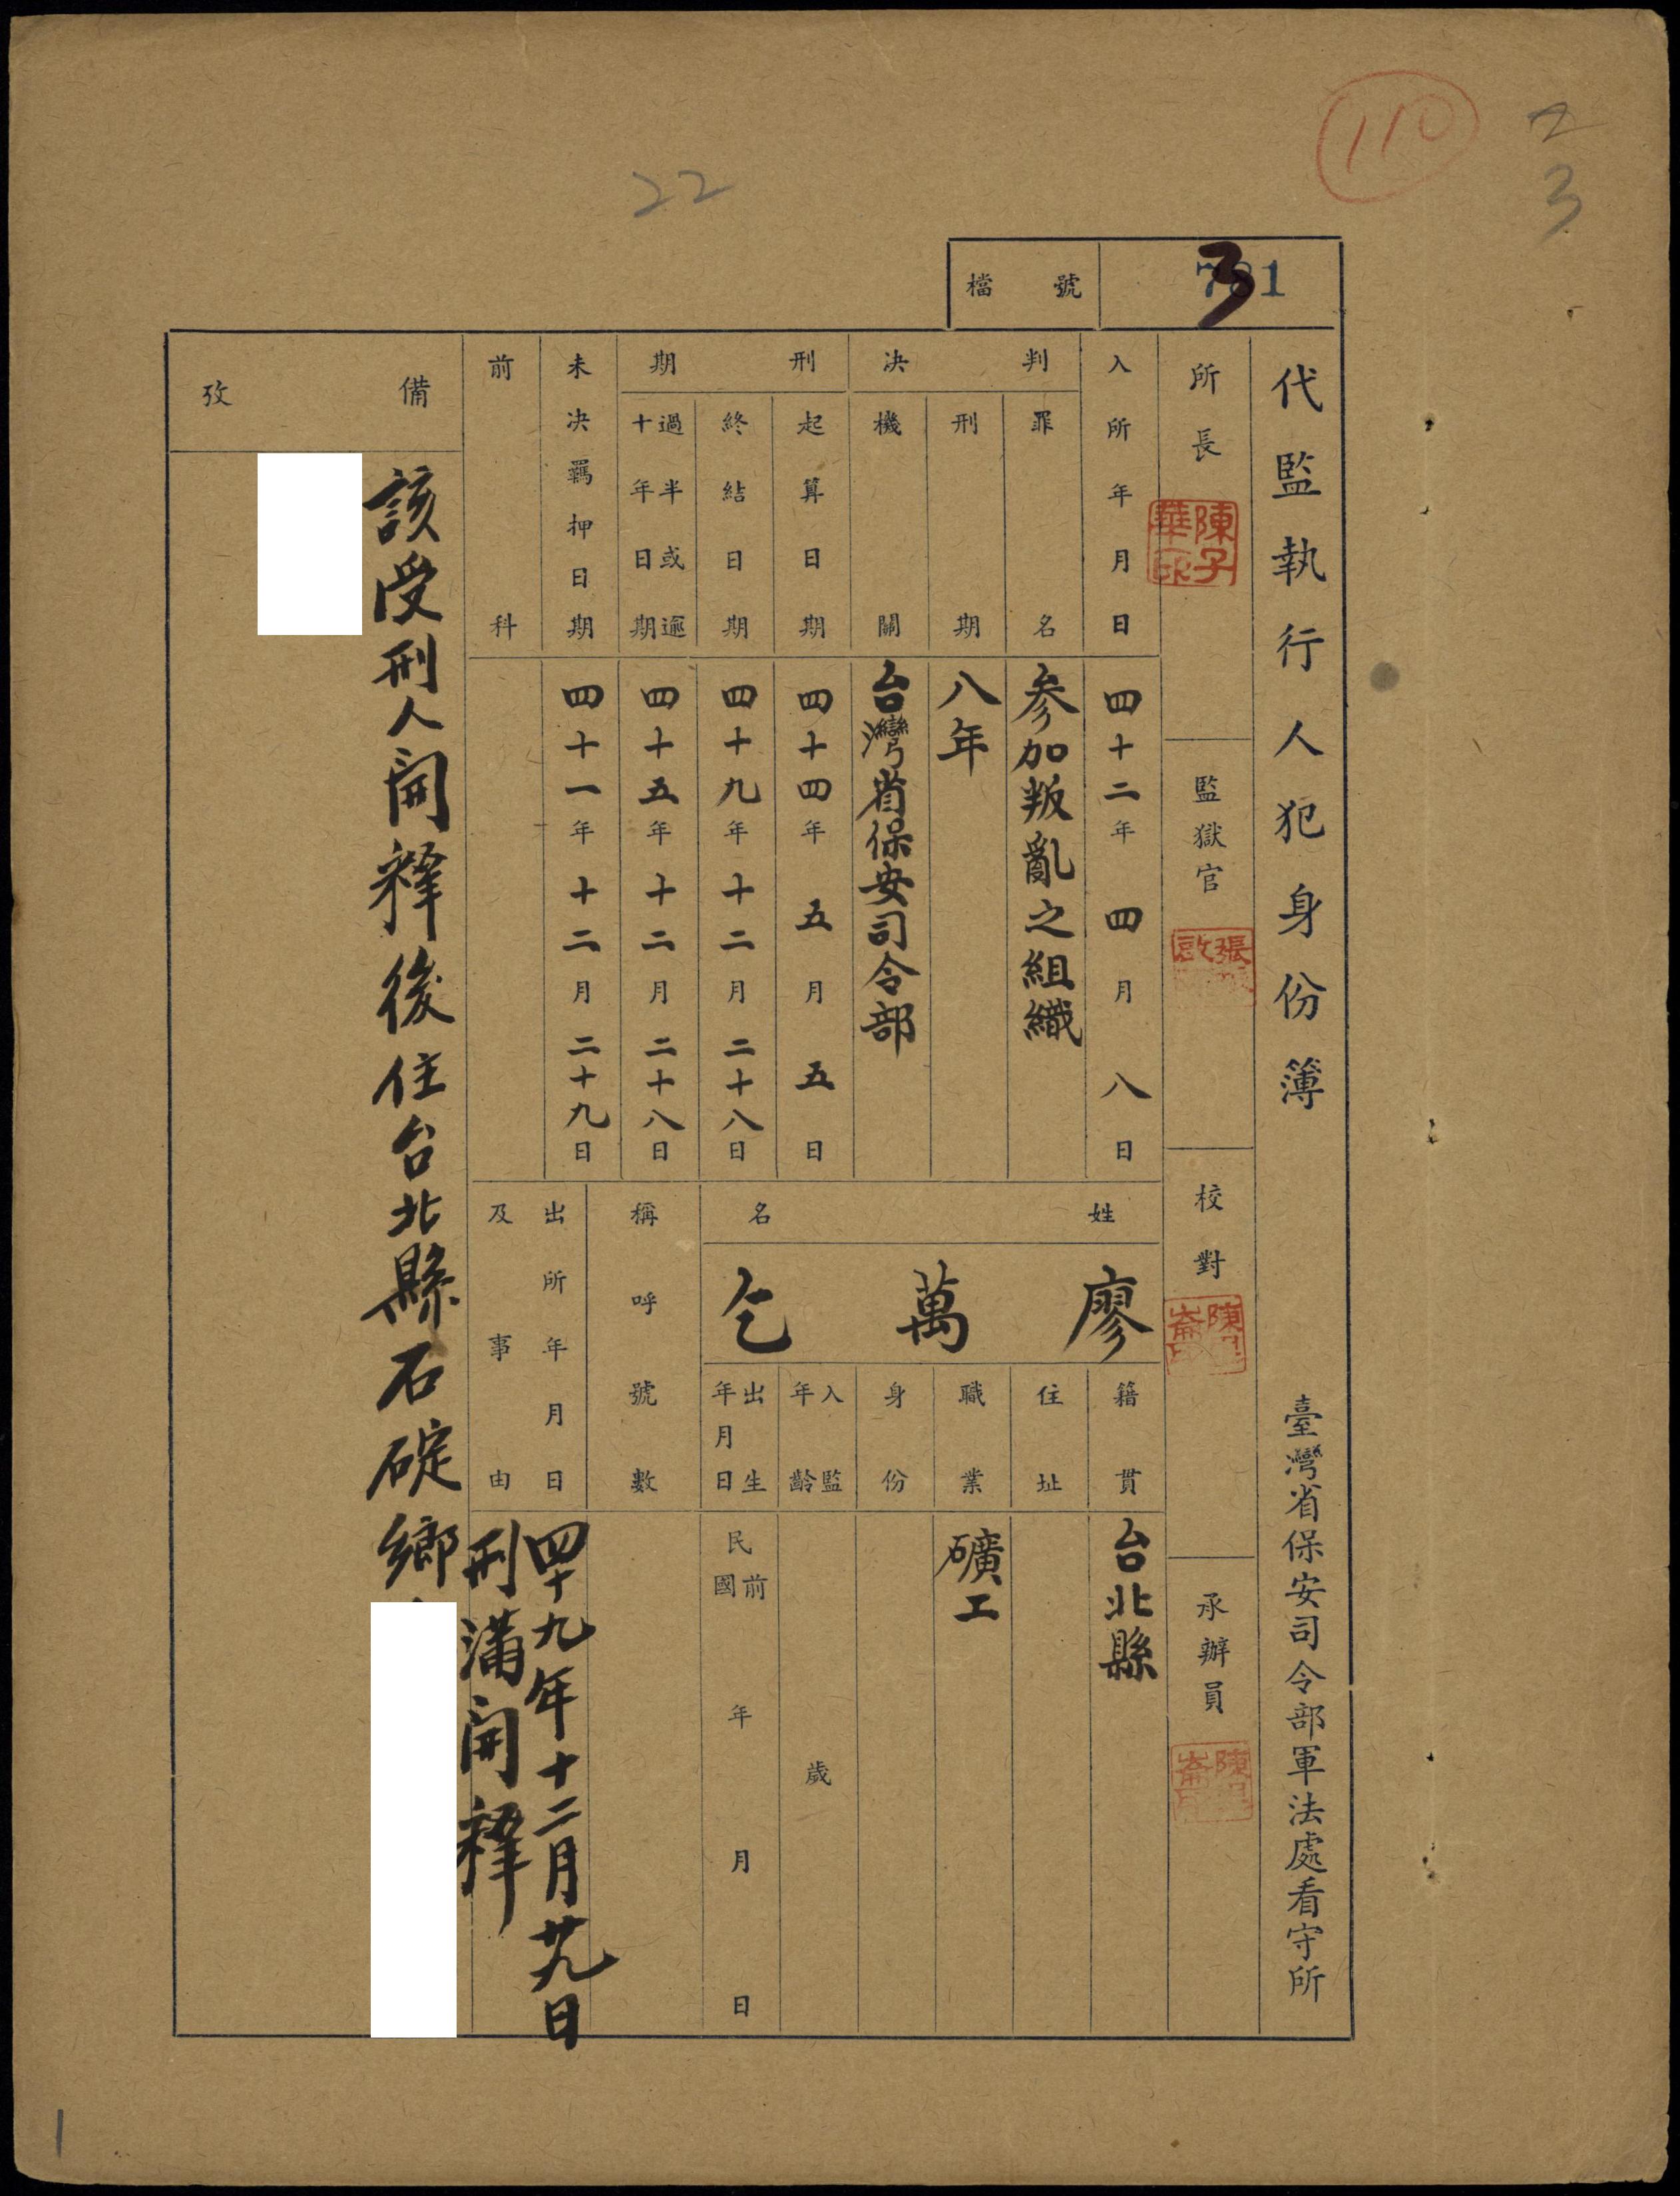 110
2
3
22
檔號
代監執行人犯身份簿
臺灣省保安司令部軍法處看守所
所長
陳子華印
監獄官
校對
承辦員
入所年月日
四十二年四月八日
判決
罪名
參加叛亂之組織
刑期
八年
機關
台灣省保安司令部
刑期
起算日期
四十四年五月五日
終結日期
四十九年十二月二十八日
過半或逾十年日期
四十五年十二月二十八日
未決羈押日期
四十一年十二月二十九日
前科
姓名
廖萬乞
籍貫
台北縣
住址
職業
礦工
身份
入監年齡
歲
出生年月日
民前國年月日
稱呼號數
出所年月日及事由
四十九年十二月廿九日
刑滿開釋
備攷
該受刑人開釋後住台北縣石碇鄉
1